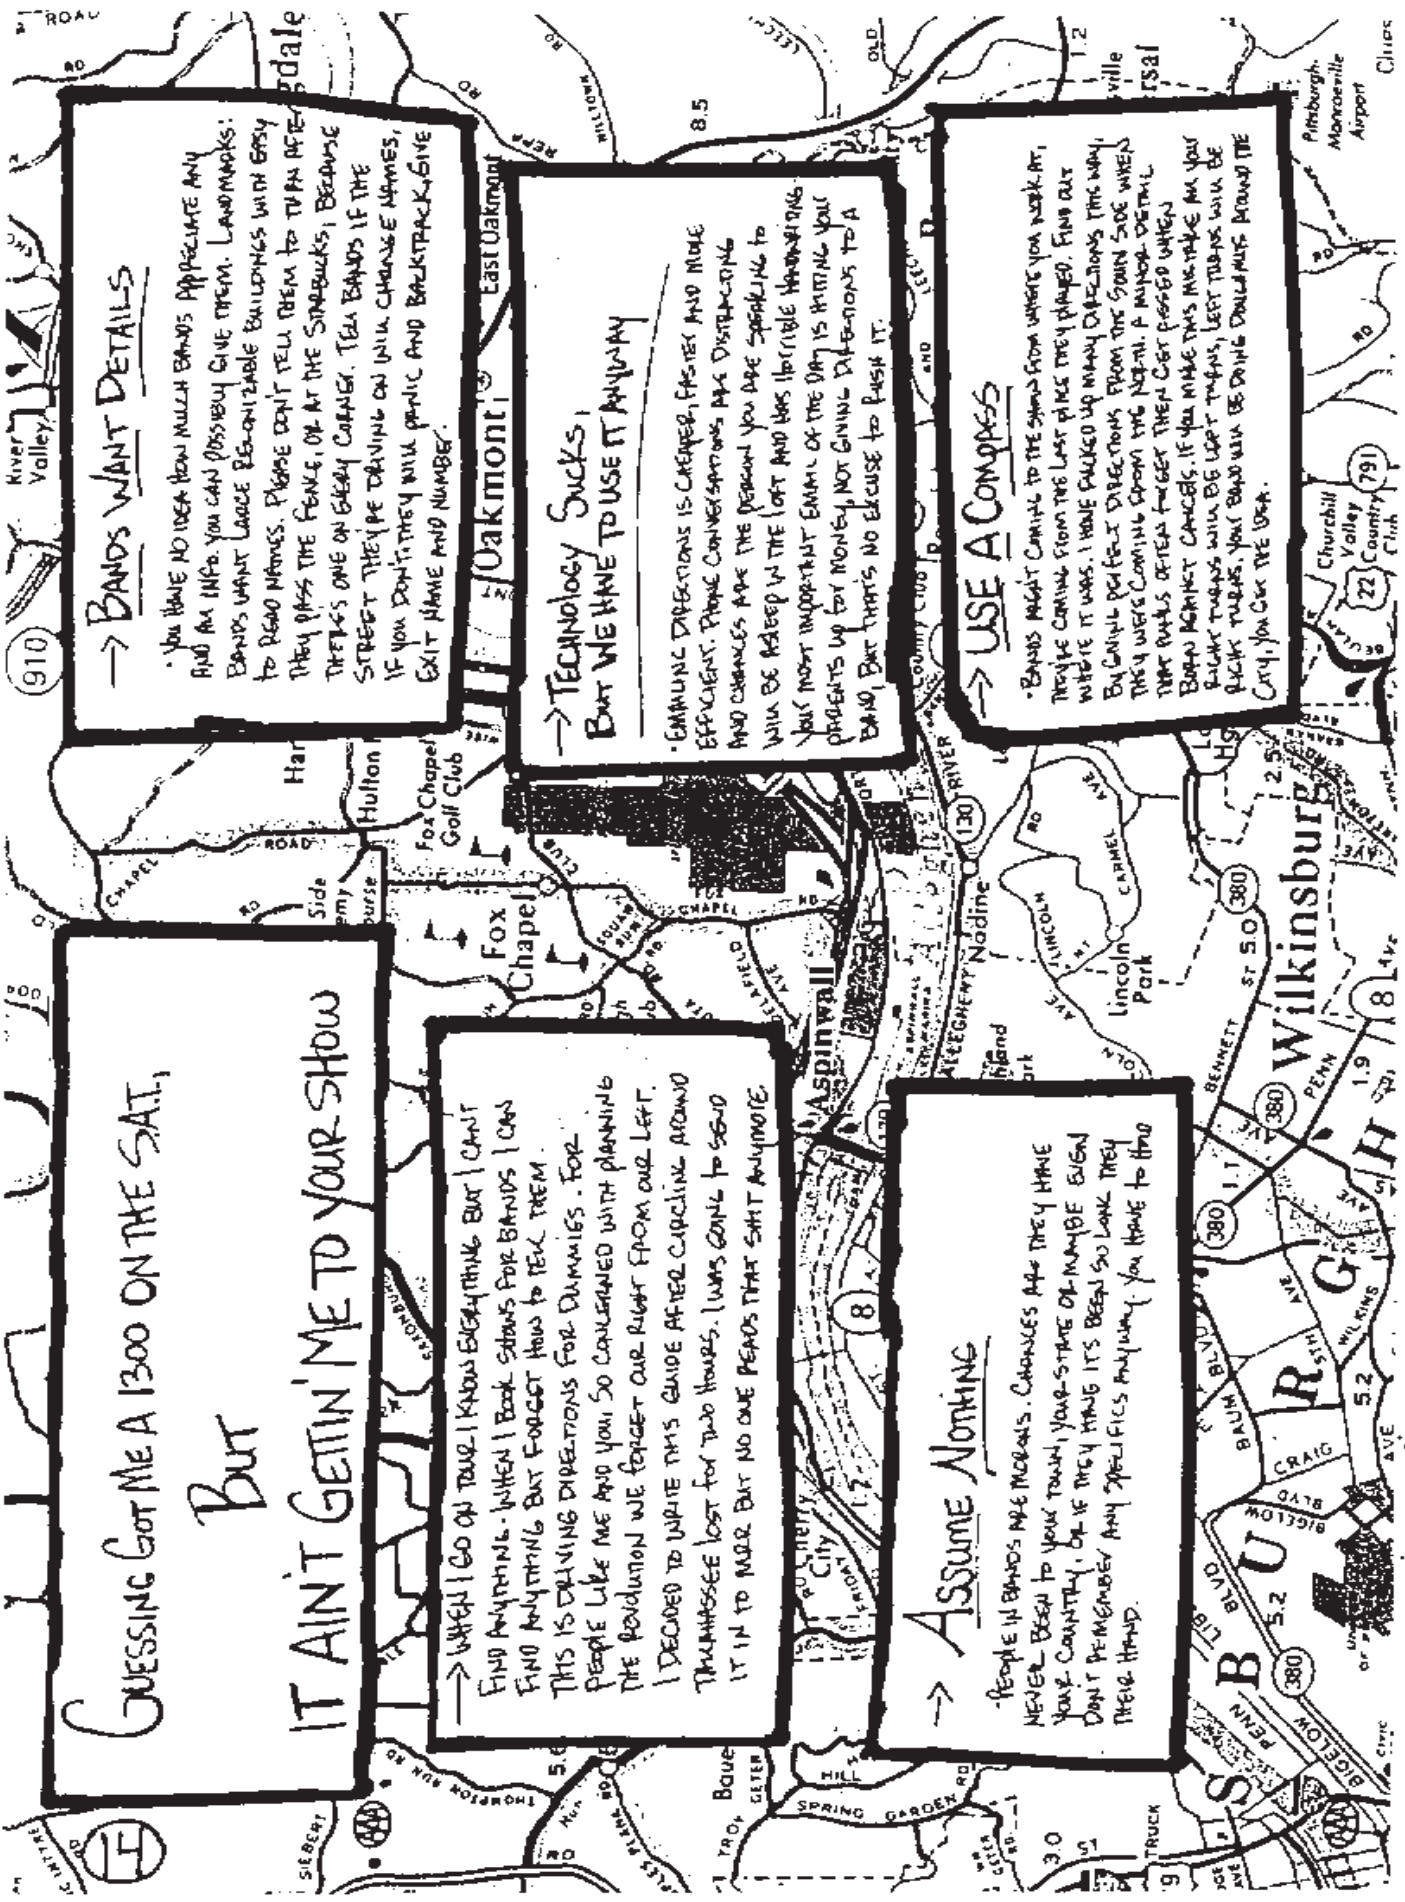 GUESSING GOT ME A 1300 ON THE SAT,
BUT
IT AIN'T GETTIN' ME TO YOUR SHOW
→ WHEN I GO ON TOUR I KNOW EVERYTHING BUT I CAN'T
FIND ANYTHING. WHEN I BOOK SHOWS FOR BANDS I CAN
FIND ANYTHING BUT FORGET HOW TO TELL THEM.
THIS IS DRIVING DIRECTIONS FOR DUMMIES. FOR
PEOPLE LIKE ME AND YOU, SO CONCERNED WITH PLANNING
THE REVOLUTION WE FORGET OUR RIGHT FROM OUR LEFT.
I DECIDED TO WRITE THIS GUIDE AFTER CIRCLING AROUND
TALLAHASSEE LOST FOR TWO HOURS. I WAS GOING TO SEND
IT IN TO MRR BUT NO ONE READS THAT SHIT ANYMORE.
→ ASSUME NOTHING
· PEOPLE IN BANDS ARE MORONS. CHANCES ARE THEY HAVE
NEVER BEEN TO YOUR TOWN, YOUR STATE OR MAYBE EVEN
YOUR COUNTRY, OR IF THEY HAVE ITS BEEN SO LONG THEY
DON'T REMEMBER ANY SPECIFICS ANYWAY. YOU HAVE TO HOLD
THEIR HAND.
→ BANDS WANT DETAILS
· YOU HAVE NO IDEA HOW MUCH BANDS APPRECIATE ANY
AND ALL INFO. YOU CAN POSSIBLY GIVE THEM. LANDMARKS:
BANDS WANT LARGE RECONIZABLE BUILDINGS WITH EASY
TO READ NAMES. PLEASE DON'T TELL THEM TO TURN AFTER
THEY PASS THE FENCE, OR AT THE STARBUCKS, BECAUSE
THERES ONE ON EVERY CORNER. TELL BANDS IF THE
STREET THEY'RE DRIVING ON WILL CHANGE NAMES,
IF YOU DON'T THEY WILL PANIC AND BACKTRACK. GIVE
EXIT NAME AND NUMBER.
→ TECHNOLOGY SUCKS,
BUT WE HAVE TO USE IT ANYWAY
· EMAILING DIRECTIONS IS CHEAPER, FASTER AND MORE
EFFICIENT. PHONE CONVERSATIONS ARE DISTRACTING
AND CHANCES ARE THE PERSON YOU ARE SPEAKING TO
WILL BE ASLEEP IN THE LOFT AND HAS HORRIBLE HANDWRITING.
YOUR MOST IMPORTANT EMAIL OF THE DAY IS HITTING YOUR
PARENTS UP FOR MONEY, NOT GIVING DIRECTIONS TO A
BAND, BUT THAT'S NO EXCUSE TO RUSH IT.
→ USE A COMPASS
· BANDS AREN'T COMING TO THE SHOW FROM WHERE YOU WORK AT,
THEY'RE COMING FROM THE LAST PLACE THEY PLAYED. FIND OUT
WHERE IT WAS. I HAVE FUCKED UP MANY DIRECTIONS THIS WAY,
BY GIVING PERFECT DIRECTIONS FROM THE SOUTH SIDE WHEN
THEY WERE COMING FROM THE NORTH. A MINOR DETAIL
THAT PUNKS OFTEN FORGET THEN GET PISSED WHEN
BORN AGAINST CANCELS. IF YOU MAKE THIS MISTAKE ALL YOUR
RIGHT TURNS WILL BE LEFT TURNS, LEFT TURNS WILL BE
RIGHT TURNS, YOUR BAND WILL BE DOING DOUGHNUTS AROUND THE
CITY, YOU GET THE IDEA.
River
Valley
910
East Oakmont
Oakmont
8.5
1.2
Pittsburgh-
Monroeville
Airport
Churchill
Valley
Country
Club
22
791
Hulton
Fox Chapel
Golf Club
CHAPEL
ROAD
Fox
Chapel
CLUB
DELAFIELD
AVE
Aspinwall
ALLEGHENY
RIVER
130
Nadine
LINCOLN
CARMEL
AVE
Lincoln
Park
BENNETT
ST 5.0
380
Wilkinsburg
PENN
AVE
1.9
8
380
1.1
380
BAUM
BLVD
CRAIG
BIGELOW
BLVD
WILKINS
AVE
5.2
THOMPSON RUN RD
SIEBERT
AAA
HILL
SPRING
GARDEN
RD
TRUCK
3.0
8
5.2
PENN
BIGELOW
BLVD
380
S B U R G H